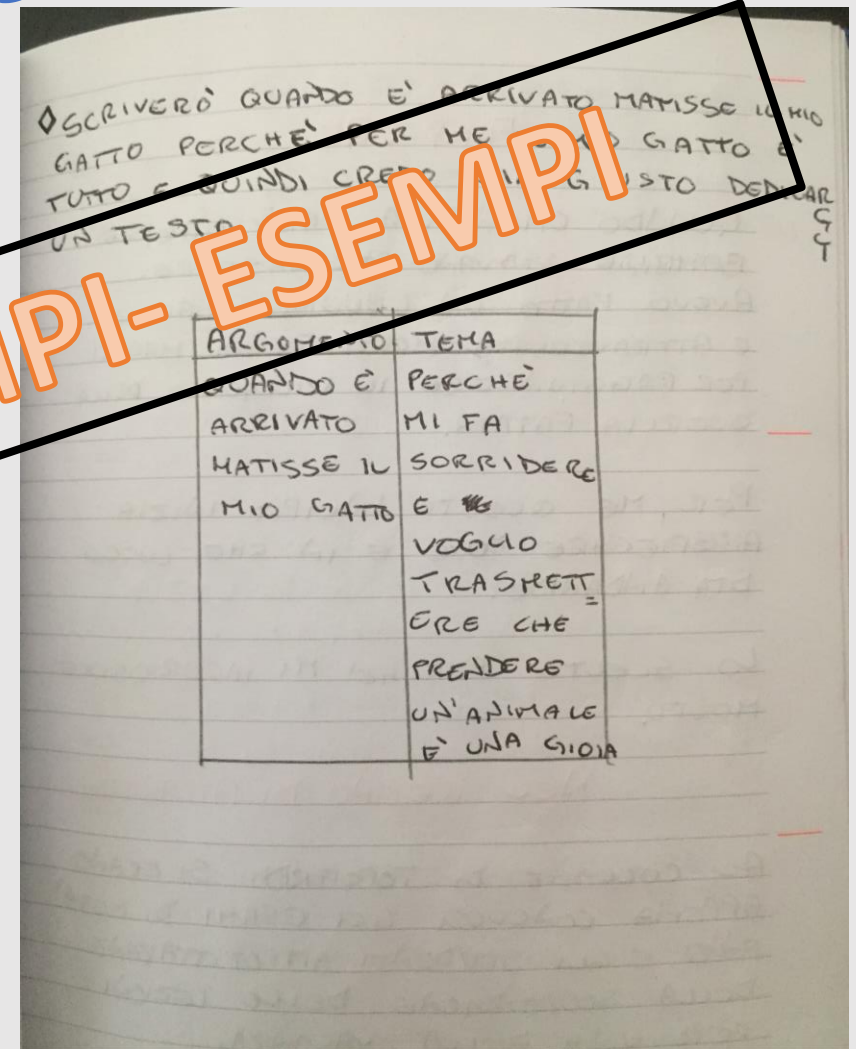 SCRIVERÒ QUANDO E' ARRIVATO MATISSE IL MIO
GATTO PERCHE' PER ME IL MIO GATTO E'
TUTTO E QUINDI CREDO GIUSTO DEDICAR
UN TESTO
MPI- ESEMPI
ARGOMENTO TEMA
QUANDO È PERCHÈ
ARRIVATO MI FA
MATISSE IL SORRIDERE
MIO GATTO E
VOGLIO
TRASMETT=
ERE CHE
PRENDERE
UN'ANIMALE
E' UNA GIOIA